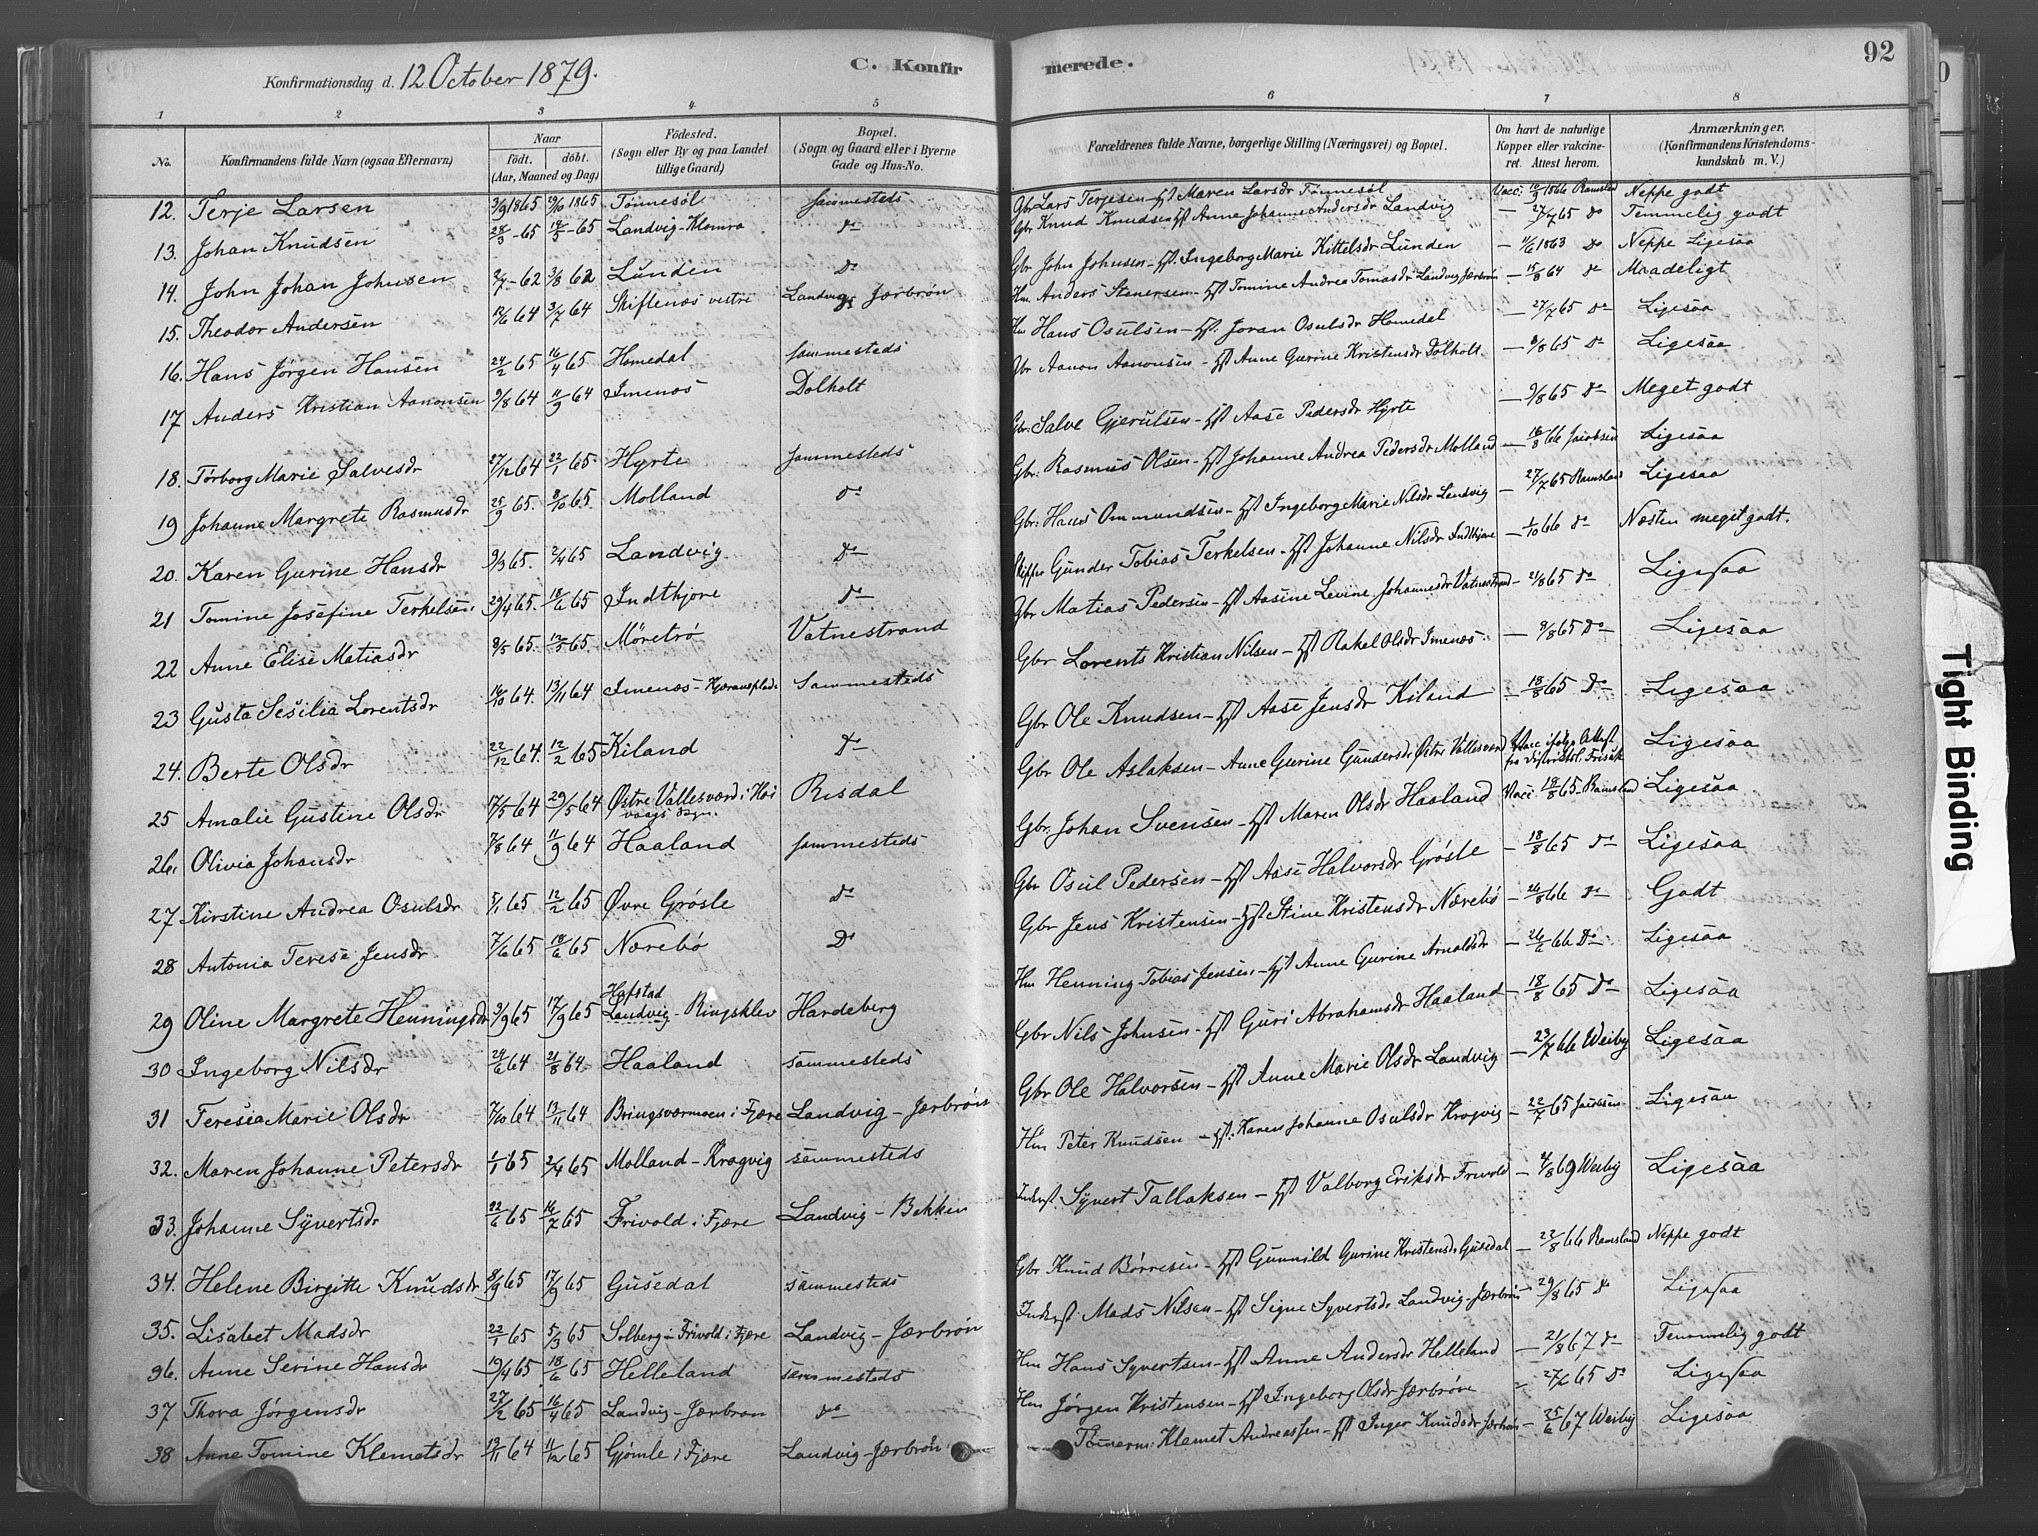 Konfirmationsdag d. 12 October 1879. C. Konfirmerede. 92
1 2 3 4 5 6 7 8
No. Konfirmandens fulde Navn (ogsaa Efternavn) Naar födt. döbt. (Aar, Maaned og Dag) Födested. (Sogn eller By og paa Landet tillige Gaard) Bopæl. (Sogn og Gaard eller i Byerne Gade og Hus-No. Forældrenes fulde Navne, borgerlige Stilling (Næringsvei) og Bopæl. Om havt de naturlige Kopper eller vaccineret. Attest herom. Anmærkninger. (Konfirmandens Kristendomskundskab m. V.)
12. Terje Larsen 3/9 1865 29/10 1865 Tönnesöl sammesteds Gbr Lars Terjesen - Hst Maren Larsdr Tönnesöl Vacc. 1866 Ramsland Neppe godt
13. Johan Knudsen 28/3 - 65 14/5 - 65 Landvig-Klomra do Gbr Knud Knudsen Hst Anne Johanne Andersdr Landvig - 27/7 65 do Temmelig godt
14. John Johan Johnsen 2/7 - 62 3/8 62 Lunden do Gbr John Johnsen - Hst. Ingeborg Marie Kittelsdr Lunden - 11/6 1863 do Neppe Ligesaa
15. Theodor Andersen 12/6 64 3/7 64 Skiftenæs vestre Landvig Jærbrön Hm. Anders Stenersen - Hst Tomine Andrea Tomasdr Landvig Jærbrön - 15/8 64 do Maadeligt
16. Hans Jørgen Hansen 24/2 65 16/4 65 Homedal sammesteds Hm Hans Osulsen - Hst. Joran Osulsdr Homedal - 27/7 65 do Ligesaa
17 Anders Kristian Aanonsen 9/8 64 11/9 64 Imenæs Dolholt Gbr Aanon Aanonsen - Hst Anne Gurine Kristensdr Dolholt - 8/8 65 do Ligesaa
18. Törborg Marie Salvesdr 27/12 64 22/1 65 Hyrte sammesteds Gbr. Salve Gjerulsen - Hst Aase Pedersdr Hyrte - 9/8 65 do Meget godt
19 Johanne Margrete Rasmusdr 25/9 65. 8/10 65. Molland do Gbr. Rasmus Olsen - Hst Johanne Andrea Pedersdr Molland - 16/8 66 Jacobsen Ligesaa
20. Karen Gurine Hansdr 9/3 65. 2/4 65 Landvig do Gbr. Hans Ommundsen - Hst Ingeborg Marie Nilsdr Landvig - 27/7 65 Ramsland Ligesaa
21 Tomine Josefine Terkelsen 29/4 65. 18/6 65 Indthjore do Skipper Gunder Tobias Terkelsen - Hst Johanne Nilsdr Indthjore - 1/10 66 do Næsten meget godt.
22 Anne Elise Matiasdr 8/5 65. 65. Möretrö Vatnestrand Gbr Matias Pedersen - Hst Aasine Levine Johannesdr Vatnestrand - 21/8 65 do Ligesaa
23 Gusta Sesilia Lorentsdr 16/10 64. 13/11 64 Imenæs - Kjæransplads Sammesteds Gbr Lorents Kristian Nilsen - Hst Rakel Olsdr Imenæs - 9/8 65 do Ligesaa
24. Berte Olsdr 22/12 64. 12/2 65 Kiland do Gbr Ole Knudsen - Hst Aase Jensdr Kiland - 18/8 65 do Ligesaa
25 Amalie Gustine Olsdr 17/5 64 29/5 64 Østre Vallesværd i Höivaags Sogn. Risdal Gbr Ole Aslaksen - Anne Gurine Gundersdr Østre Vallesværd Vacc. ifølge Attest fra Distriktsl. Frisak Ligesaa
26. Olivia Johansdr 7/8 64 11/9 64 Haaland sammesteds Gbr. Johan Svensen - Hst Maren Olsdr Haaland Vacc. 18/8 65 - Ramsland Ligesaa
27 Kirstine Andrea Osulsdr 5/1 65 12/2 65 Øvre Grösle do Gbr Osul Pedersen - Hst Aase Halvorsdr Grösle - 18/8 65 do Ligesaa
28 Antonia Terese Jensdr 7/6 65 18/6 65 Nærebö do Gbr Jens Kristensen - Hst Stine Kristensdr Nærebö - 26/8 66 do Godt
29 Oline Margrete Henningsdr 3/9 65 17/9 65 Hafstad Landvig - Ringsklev Hardeberg Hm Henning Tobias Jensen - Hst Anne Gurine Arnoldsdr - 26/6 66 do Ligesaa
30 Ingeborg Nilsdr 24/6 64 21/8 64. Haaland sammesteds Gbr Nils Johnsen - Hst Guri Abrahamsdr Haaland - 18/8 65 do Ligesaa
31 Teresia Marie Olsdr 7/10 64 13/11 64 Bringsværmoen i Fjære Landvig - Jærbrön Gbr Ole Halvorsen - Hst Anne Marie Olsdr Landvig - 23/7 66 Weiby Ligesaa
32. Maren Johanne Petersdr 1/1 65 2/4 65 Molland - Kragvig sammesteds Hm Peter Knudsen - Hst. Karen Johanne Osulsdr Kragvig - 22/7 65 Jacobsen Ligesaa
33. Johanne Syvertsdr 22/6 65 16/7 65 Frivold i Fjære Landvig - Bekken Inderst. Syvert Tallaksen - Hst Valborg Eriksdr Frivold - 4/8 69 Weiby Ligesaa
34. Helene Birgitte Knudsdr 8/9 65 17/9 65 Gusedal sammesteds Gbr Knud Börresen - Hst Gunnild Gurine Kristensdr Gusedal - 22/8 66 Ramsland Neppe godt
35. Lisabet Madsdr 22/1 65 5/3 65 Solberg - Frivold i Fjære Landvig - Jærbrön Inderst. Mads Nilsen - Hst Signe Syvertsdr Landvig-Jærbrön - 29/8 65 do Ligesaa
36. Anne Serine Hansdr 19/4 65 18/6 65 Helleland sammesteds Hm Hans Syvertsen - Hst Anne Andersdr Helleland - 21/8 67 do Temmelig godt
37 Thora Jørgensdr 27/2 65 16/4 65 Landvig - Jærbron do Hm Jørgen Kristensen - Hst Ingeborg Olsdr Jærbrön - 27/6 65 do Ligesaa
38 Anne Tomine Klemetsdr 64 65 Gjömle i Fjære Landvig - Jærbrön Tömerm. Klemet Andreassen - Hst Inger Knudsdr Jærbrön - 25/6 67 Weiby Ligesaa
Tight Binding